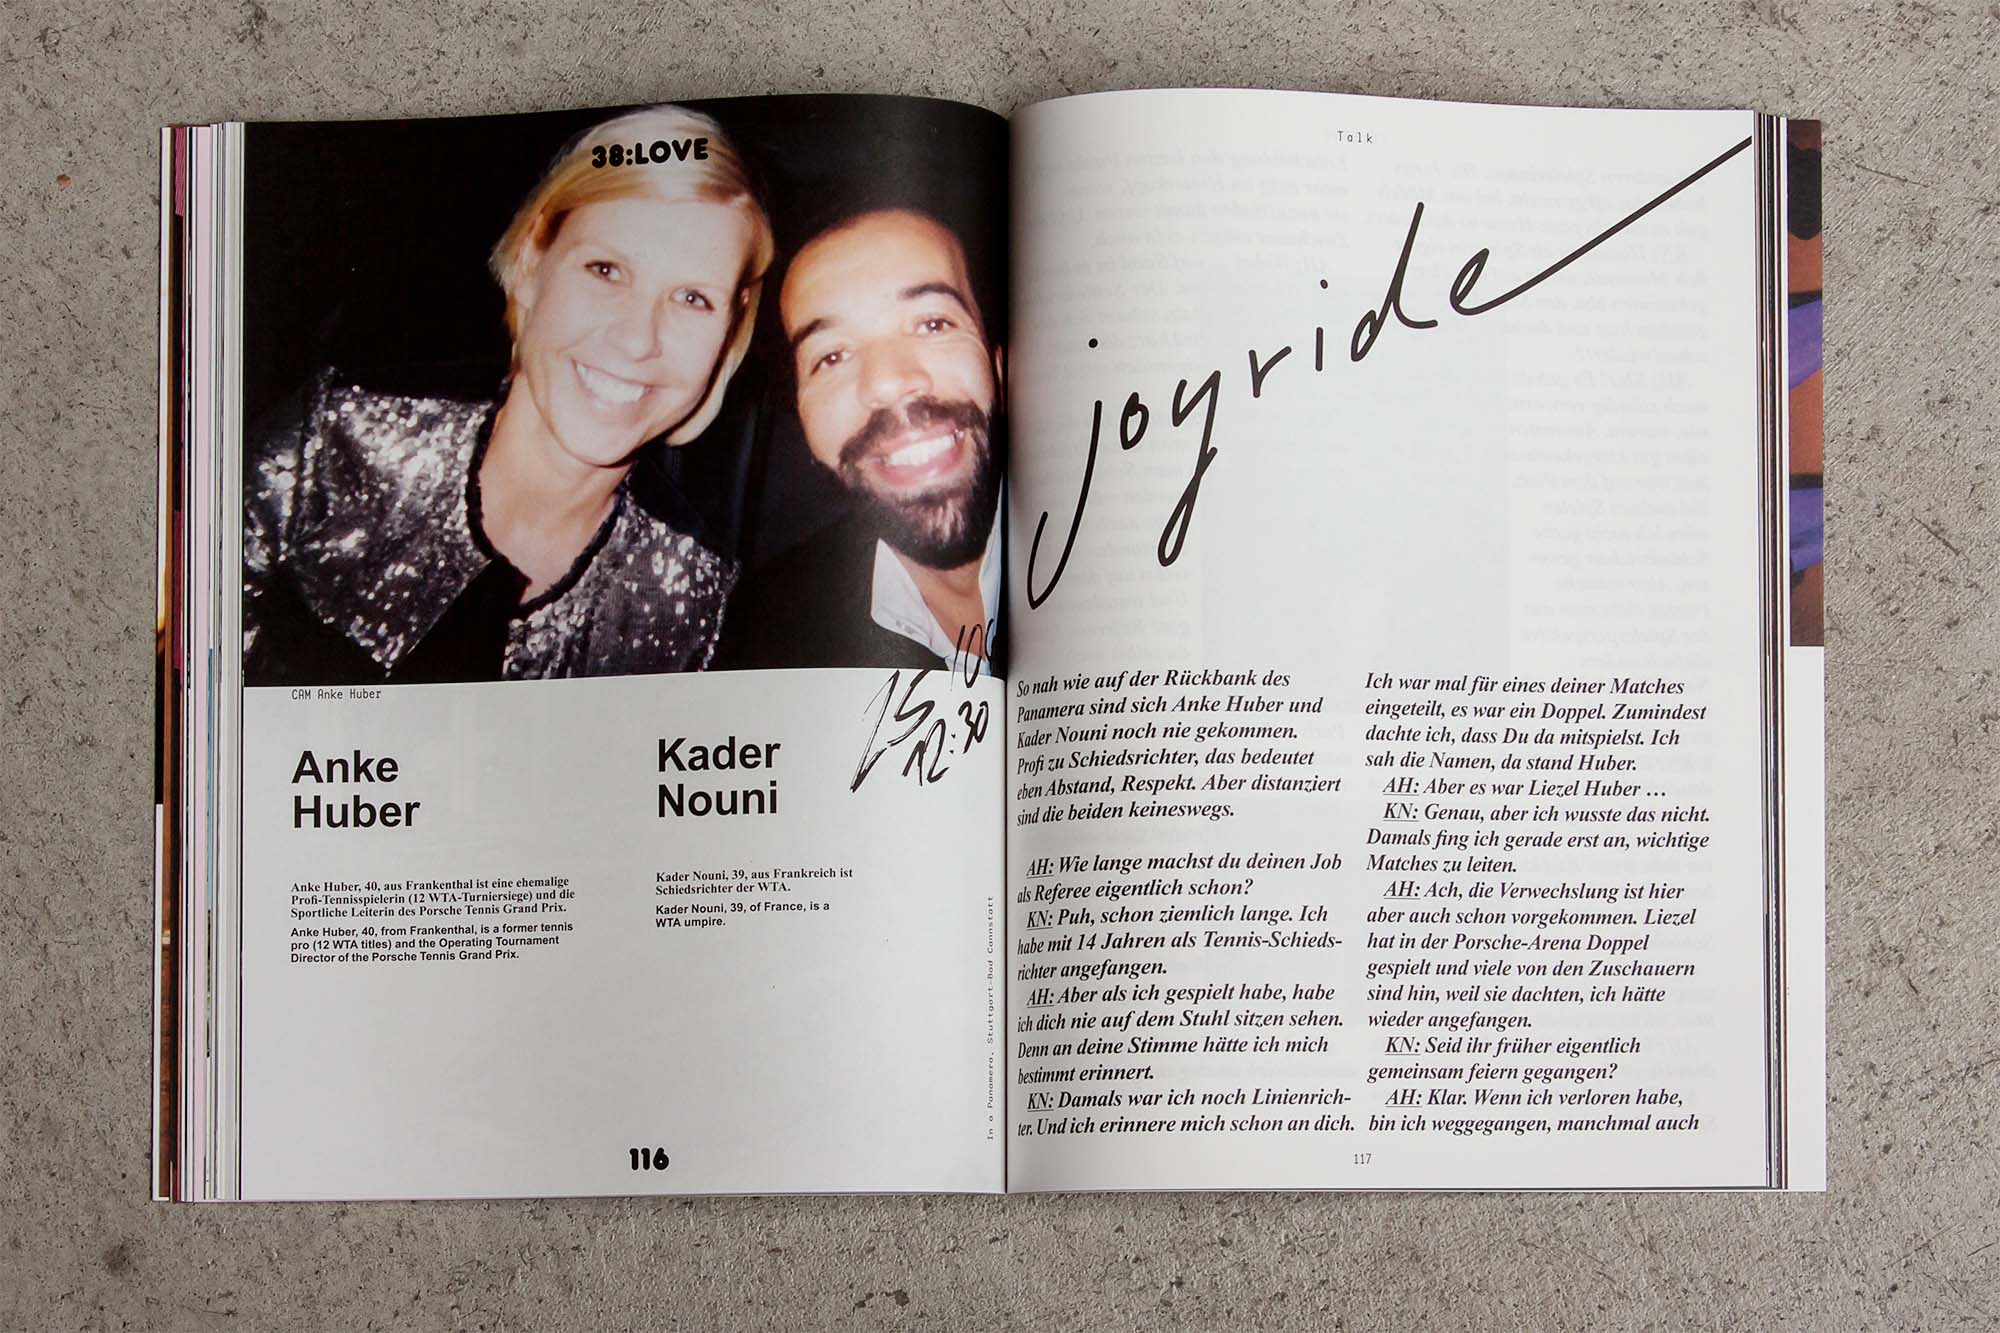 38:LOVE
CAM Anke Huber
12:30
Anke
Huber
Anke Huber, 40, aus Frankenthal ist eine ehemalige
Profi-Tennisspielerin (12 WTA-Turniersiege) und die
Sportliche Leiterin des Porsche Tennis Grand Prix.
Anke Huber, 40, from Frankenthal, is a former tennis
pro (12 WTA titles) and the Operating Tournament
Director of the Porsche Tennis Grand Prix.
Kader
Nouni
Kader Nouni, 39, aus Frankreich ist
Schiedsrichter der WTA.
Kader Nouni, 39, of France, is a
WTA umpire.
In a Panamera, Stuttgart-Bad Cannstatt
116
Talk
joyride
So nah wie auf der Rückbank des
Panamera sind sich Anke Huber und
Kader Nouni noch nie gekommen.
Profi zu Schiedsrichter, das bedeutet
eben Abstand, Respekt. Aber distanziert
sind die beiden keineswegs.
AH: Wie lange machst du deinen Job
als Referee eigentlich schon?
KN: Puh, schon ziemlich lange. Ich
habe mit 14 Jahren als Tennis-Schieds-
richter angefangen.
AH: Aber als ich gespielt habe, habe
ich dich nie auf dem Stuhl sitzen sehen.
Denn an deine Stimme hätte ich mich
bestimmt erinnert.
KN: Damals war ich noch Linienrich-
ter. Und ich erinnere mich schon an dich.
Ich war mal für eines deiner Matches
eingeteilt, es war ein Doppel. Zumindest
dachte ich, dass Du da mitspielst. Ich
sah die Namen, da stand Huber.
AH: Aber es war Liezel Huber …
KN: Genau, aber ich wusste das nicht.
Damals fing ich gerade erst an, wichtige
Matches zu leiten.
AH: Ach, die Verwechslung ist hier
aber auch schon vorgekommen. Liezel
hat in der Porsche-Arena Doppel
gespielt und viele von den Zuschauern
sind hin, weil sie dachten, ich hätte
wieder angefangen.
KN: Seid ihr früher eigentlich
gemeinsam feiern gegangen?
AH: Klar. Wenn ich verloren habe,
bin ich weggegangen, manchmal auch
117